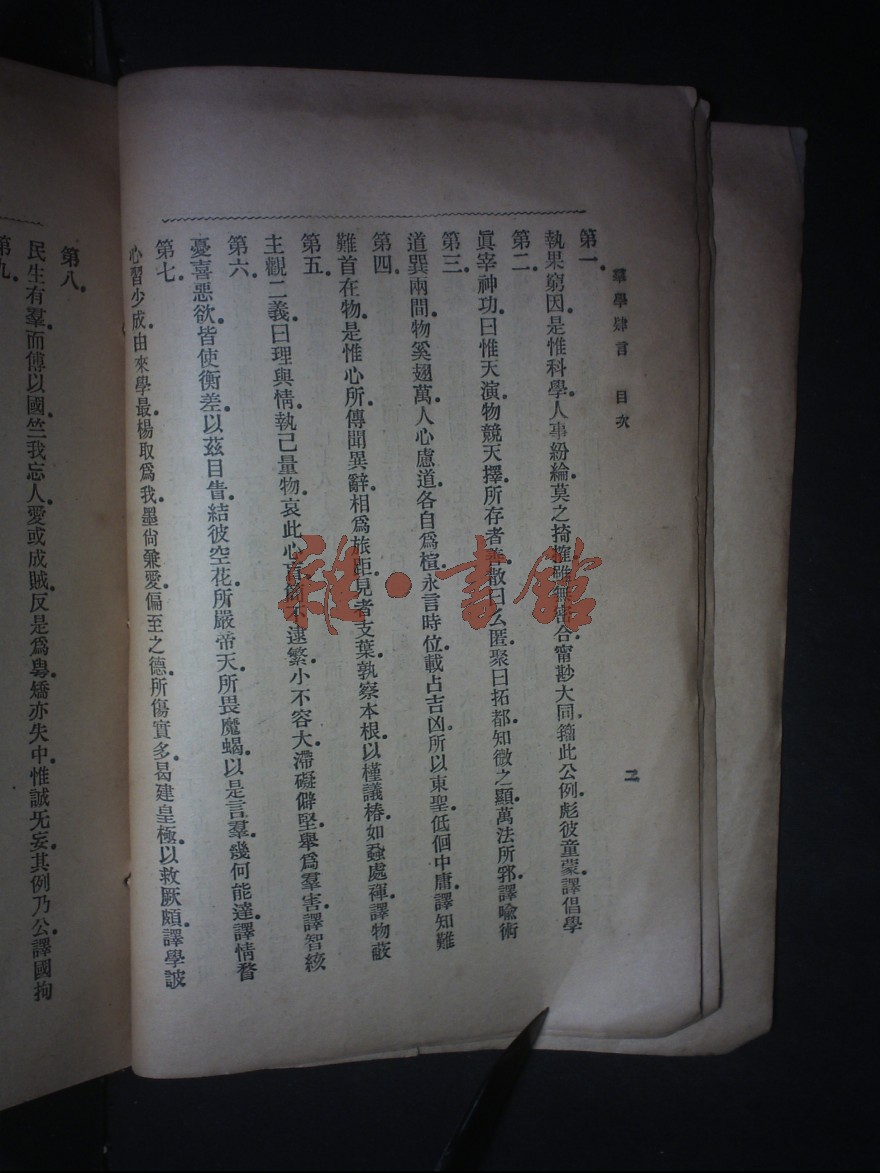 羣學肄言　目次
二
第一
執果窮因是惟科學人事紛綸莫之掎摭雖無密合甯尠大同籀此公例彪彼童蒙譯倡學
第二
眞宰神功曰惟天演物競天擇所存者善散曰么匿聚曰拓都知微之顯萬法所郛譯喩術
第三
道巽兩間物奚翅萬人心慮道各自爲楦永言時位載占吉凶所以東聖低佪中庸譯知難
第四
難首在物是惟心所傳聞異辭相爲旅距見者支葉孰察本根以槿議椿如蝨處褌譯物蔽
第五
主觀二義曰理與情執己量物哀此心盲簡不逮繁小不容大滯礙僻堅舉爲羣害譯智絃
第六
憂喜惡欲皆使衡差以茲目眚結彼空花所嚴帝天所畏魔蝎以是言羣幾何能達譯情瞀
第七
心習少成由來學最楊取爲我墨尙兼愛偏至之德所傷實多曷建皇極以救厥頗譯學詖
第八
民生有羣而傅以國竺我忘人愛或成賊反是爲粤矯亦失中惟誠旡妄其例乃公譯國拘
第九
雜·書館